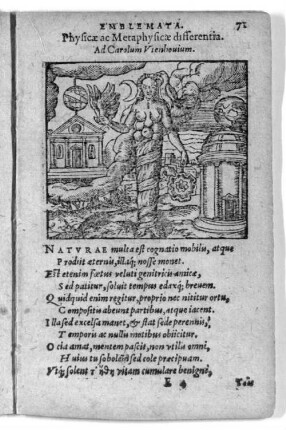 EMBLEMATA. 71
Physicæ ac Metaphysicæ differentia.
Ad Carolum Vtenhouium.
NATVRAE multa est cognatio mobilis, atque
Prodit æternis, illaq́; nosse monet.
Est etenim fœtus veluti genitricis amicæ,
Sed patitur, soluit tempus edaxq́; breuem.
Quidquid enim regitur, proprio nec nititur ortu,
Compositu abeunt partibus, atque iacent.
Illa sed excelsa manet, & stat sede perennis,
Temporis ac nullis motibus obiicitur.
Ocia amat, mentem pascit, non vtilis omni,
Huius tu sobolem sed cole præcipuam.
Vtq́; solent τ' ἤθη vitam cumulare benignis,
E 4 Tois